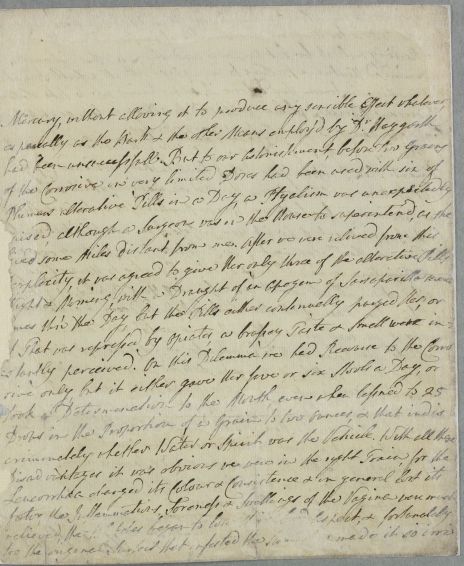 Mercury, without allowing it to produce any sensible Effect whatever,
especially as the Bark & the other Means employ'd by Dr Haygarth
had been unsuccessful. But to our Astonishment before two Grains
of the Corrosive in very limited Doses had been used with six of
Plummers alterative Pills in a Day, a Ptyalism was unexpectedly
raised although a Surgeon was in the House to superintend, as she
lived some Miles distant from me. After we were relieved from this
it was agreed to give her only three of the alterative Pills
Night & Morning with a Draught of an Apozem of Sarsaparilla
thro' the Day but the Pills either continually purged her, or
if That was repressed by Opiates a brassy Taste & Smell were in-
stantly perceived. In this Dilemma we had Recourse to the Corro
sive only but it either gave her five or six Stools a Day, or
took a Determination to the Mouth even when lessened to 25
Drops in the Proportion of a Grain to two Ounces & that indis
criminately whether Water or Spirit was the Vehicle. With all these
Disadvantages it was obvious we were in the right Train, for the
Leucorrhea changed its Colour & Consistence & in general lost its
the Inflammation, Soreness & Swellings of the Vagina were much
relieved, the began to & fortunately
for the that infested the made it so